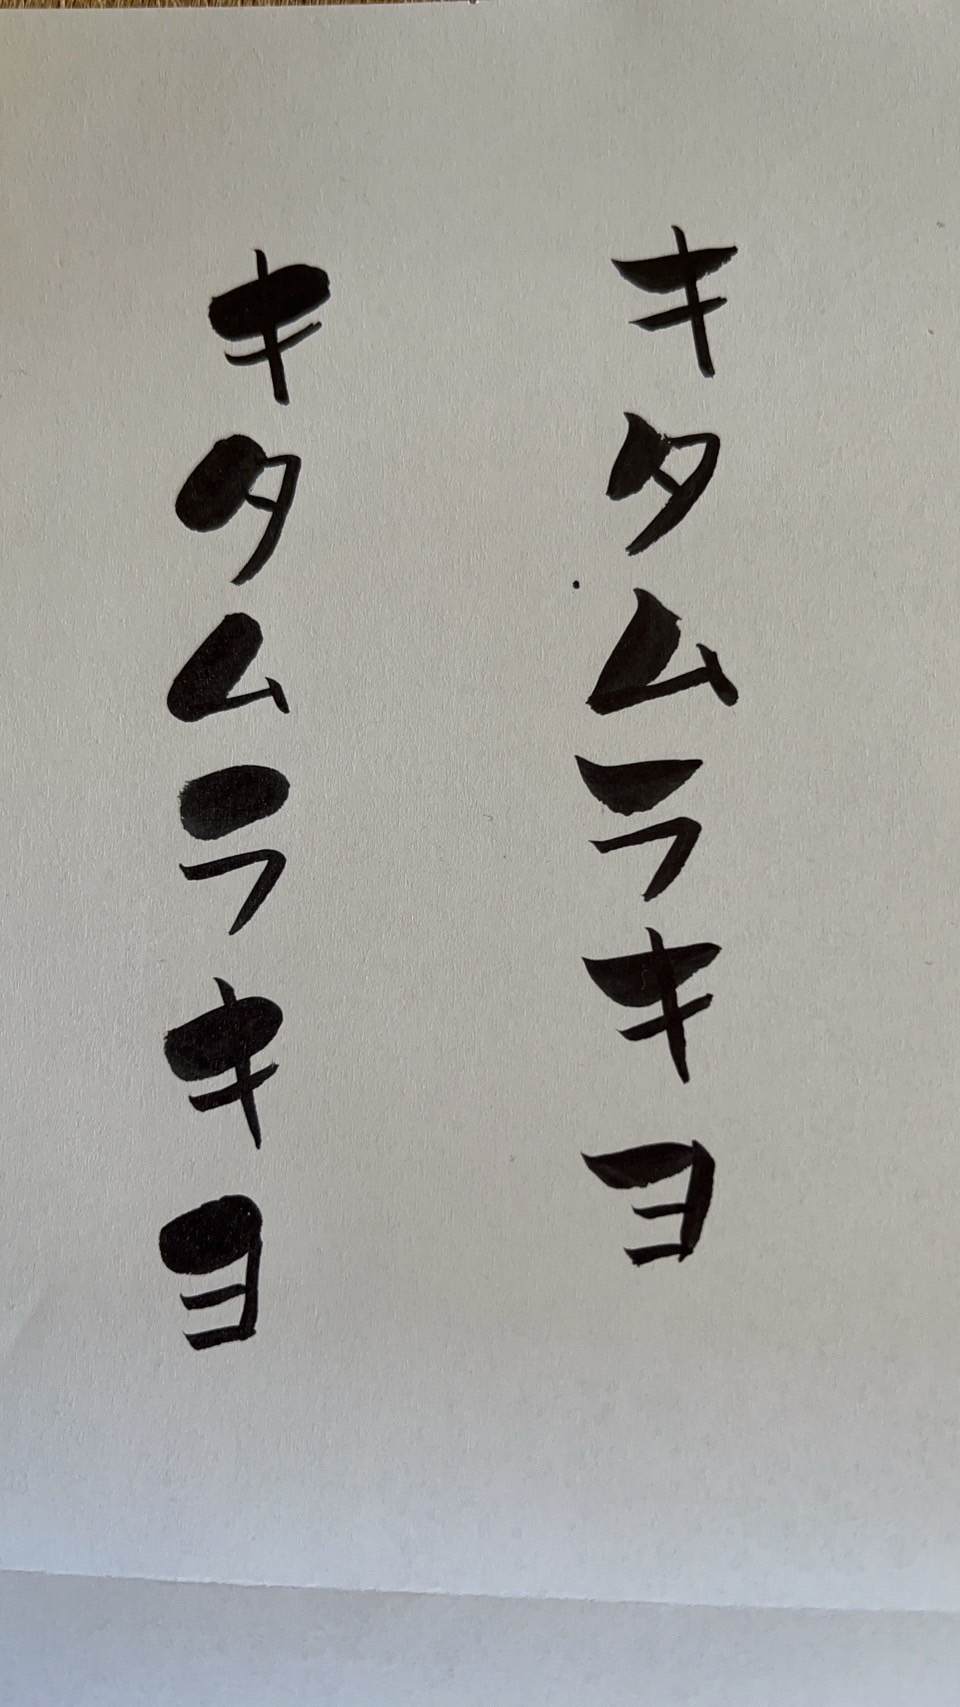 キタムラキヨ
キタムラキヨ